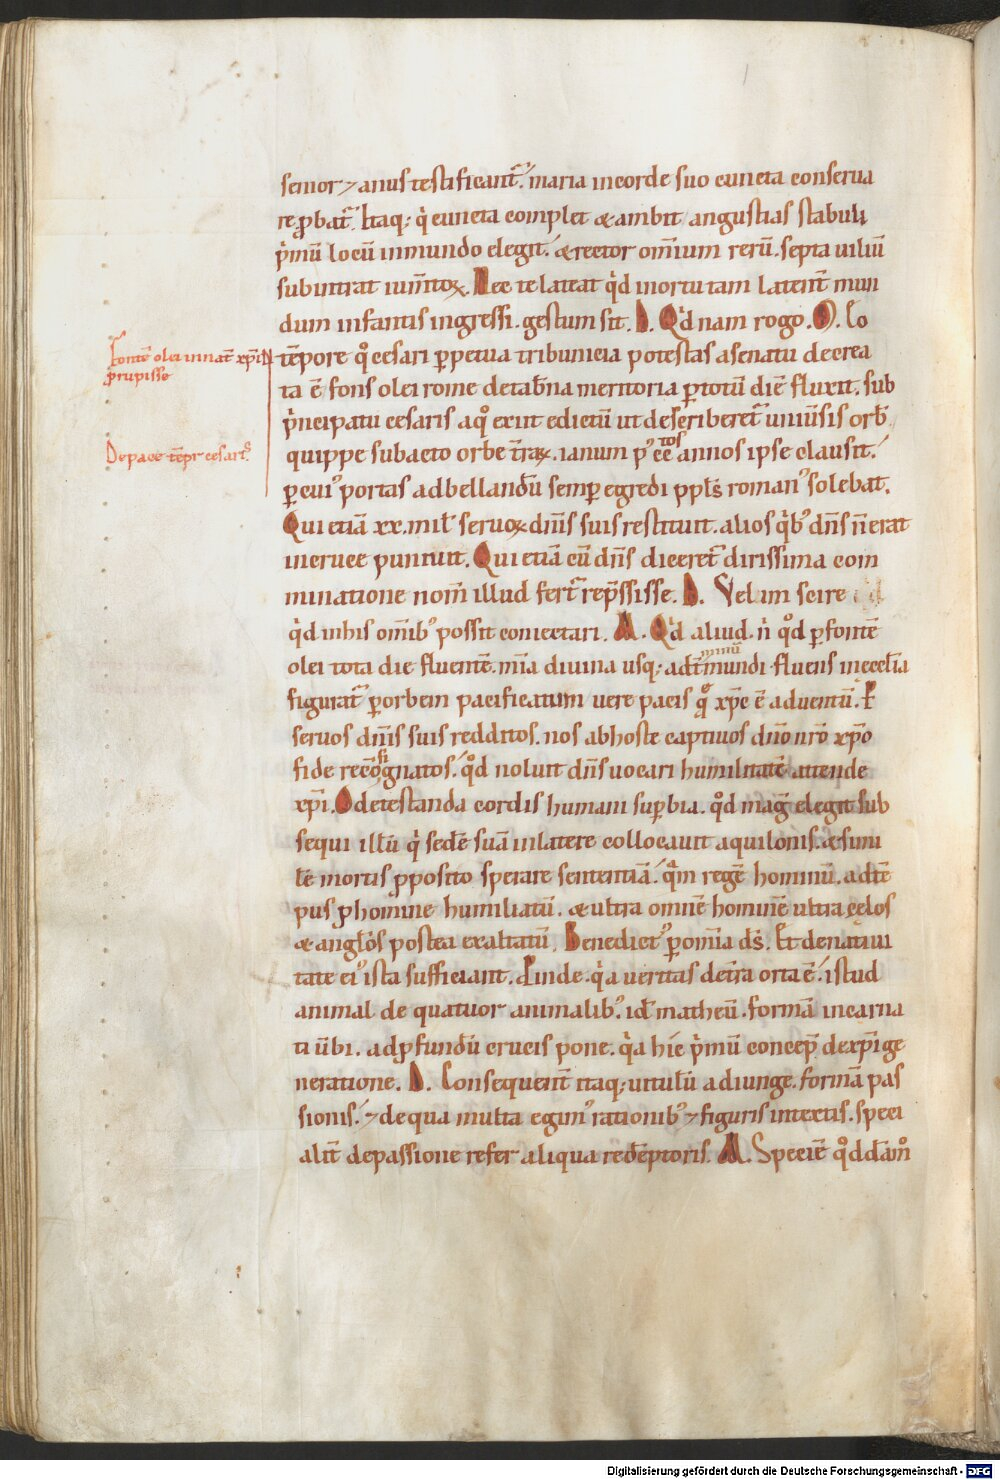 senior ⁊ anus testificant᷑. maria in corde suo cuncta conserua
re ꝓbat᷑. Itaq; q̇ cuncta complet & ambit angustias stabuli
p̍mū locū in mundo elegit. & rector om̄ium rerū. septa uiliū
subintrat ium̄toꝝ. Nec te lateat q̇d in ortu tam latent̄ mun
dum infantis ingressi. gestum sit. D. Q̇d nam rogo. M. Eo
Fontē olei in nat̄ xp̄i
ꝓrupisse
tēpore qͦ cesari ꝑpetua tribunicia potestas a senatu decre
ta ē fons olei rome de tab̄na meritoria ꝑ totū diē fluxit. sub
p̍ncipatu cesaris a qͦ exiit edictū ut describeret᷑ uniūsis orb̄
De pace tēpr cesaris
quippe subacto orbe t̄raꝝ. ianum pͥ cctos annos ipse clausit.
ꝑ cuiꝰ portas ad bellandū semꝑ egredi ppl̄s romanꝰ solebat.
Qui etiā xx. mil̄ seruoꝝ dn̄is suis restituit. alios q̍bꝰ dn̄s n̄ erat
in cruce puniuit. Qui etiā cū dn̄s diceret᷑ dirissima com
minatione nom̄ illud fert᷑ rep̄ssisse. D. Velim scire
q̇d in his om̄ibꝰ possit coniectari. M. Q̇d aliud. n̍ qͦd ꝑ fontē
olei tota die fluentē. m̄ia diuina usq; ad t̄minū mundi fluens in eccl̄ia
figurat᷑ ꝑ orbem pacificatum uere pacis qͦ xp̄c ē aduentū. P
seruos dn̄is suis redditos. nos ab hoste captiuos dn̄o nr̄o xp̄o
fide recōgnatos. qͦd noluit dn̄s uocari humilitatē attende
xp̄i. O detestanda cordis humani suꝑbia. qͦd mag̍ elegit sub
sequi illū q̍ sedē suā in latere collocauit aquilonis. & simi
lē mortis ꝓposito sperare sententiā. qͣm regē hominū. ad tē
pus ꝓ homine humiliatū. & ultra omnē hominē ultra celos
& angl̄os postea exaltatū. Benedictꝰ ꝑ om̄ia ds̄. Et de natiui
tate eiꝰ ista sufficiant. Proinde q̍a ueritas de t̄ra orta ē. istud
animal de quatuor animalibꝰ. id matheū. formā incarna
ti u̅bi. ad ꝓfundū crucis pone. q̍a hic p̍mū concep̄ de xp̄i ge
neratione. D. Consequent̄ itaq; uitulū adiunge. formā pas
sionis. ⁊ de qua multa egimꝰ rationibꝰ ⁊ figuris intextis. speci
alit̄ de passione refer aliqua redēptoris. M. Speciē qͦddāmͦ